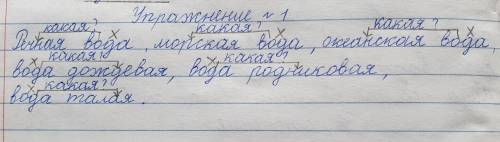 Упражнение № 1
какая? какая? какая?
Речная вода, морская вода, океанская вода,
какая? какая?
вода дождевая, вода родниковая,
какая?
вода талая.